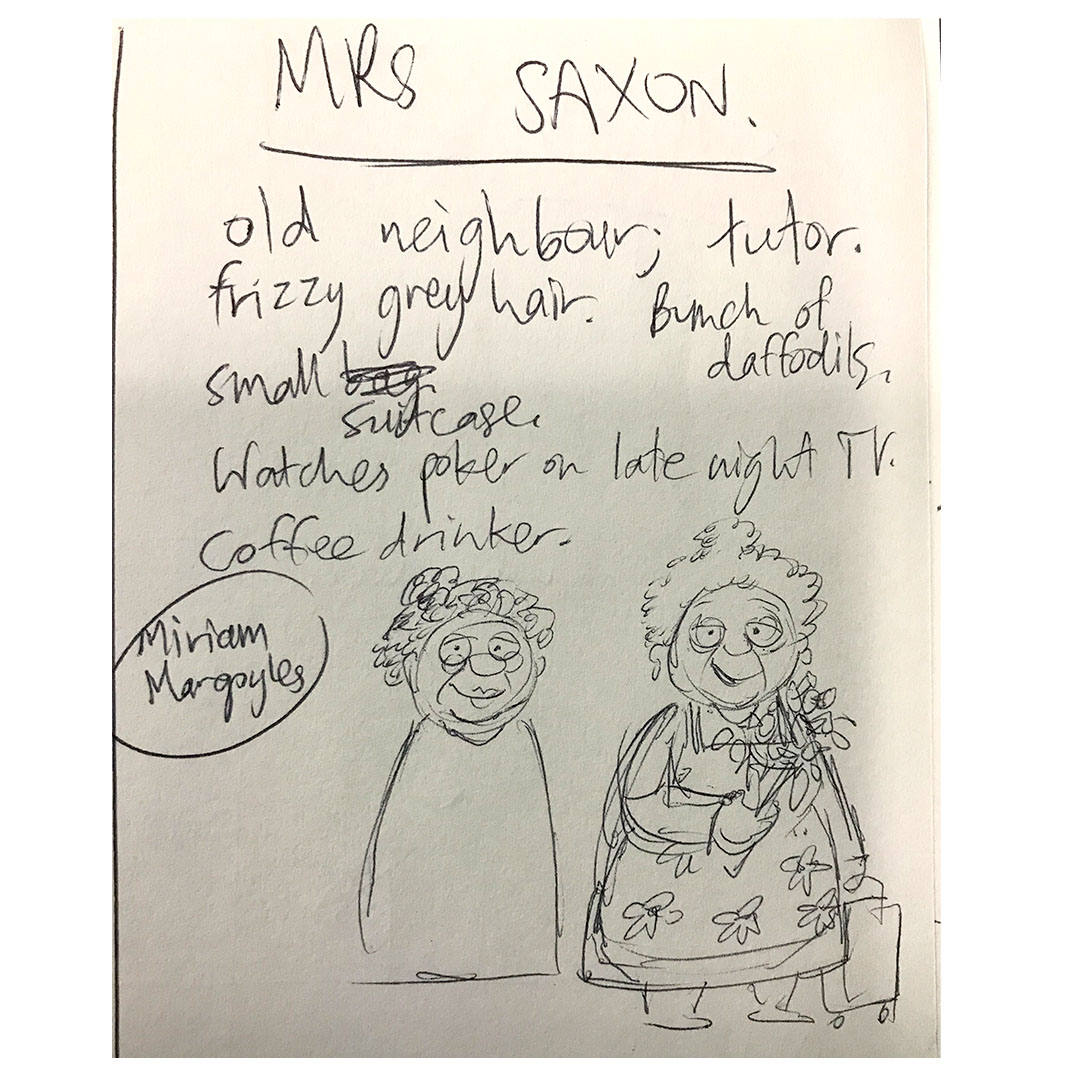 MRS SAXON.
old neighbour; tutor.
frizzy grey hair. Bunch of
daffodils.
small bag
suitcase.
Watches poker on late night TV.
Coffee drinker.
Miriam
Margoyles